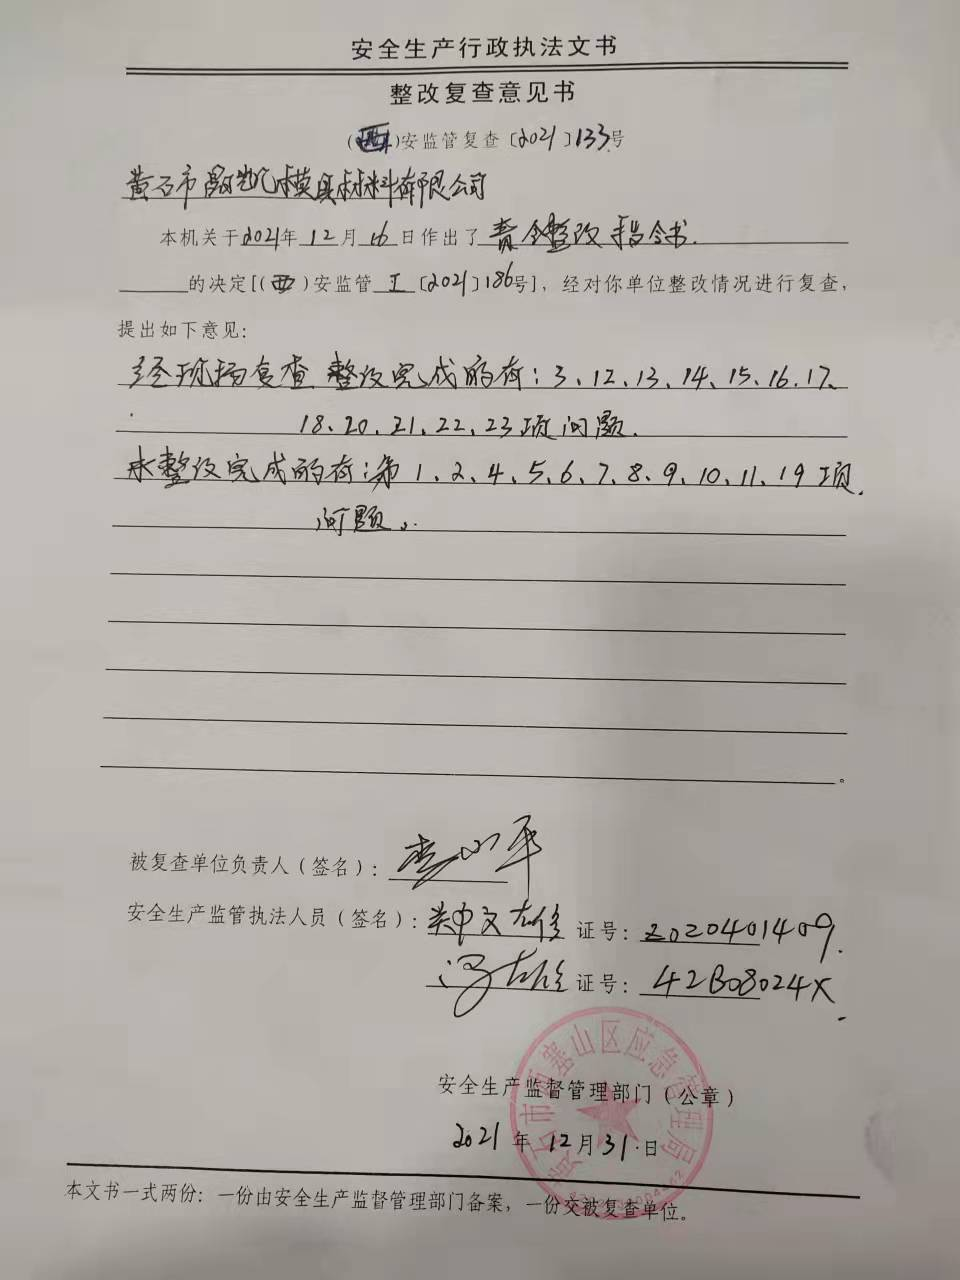 安全生产行政执法文书
整改复查意见书
(西)安监管复查〔2021〕133号
黄石市凯模具材料有限公司
本机关于2021年12月16日作出了责令整改指令书.
的决定[(西)安监管 〔2021〕186号]，经对你单位整改情况进行复查，
提出如下意见：
经现场复查 整改完成的有：3、12、13、14、15、16、17、
18、20、21、22、23项问题.
未整改完成的有：第1、2、4、5、6、7、8、9、10、11、19项.
问题。
被复查单位负责人（签名）：
安全生产监管执法人员（签名）： 证号：2020401409.
证号：42B08024X
黄石市西塞山区应急管理局
安全生产监督管理部门（公章）
2021年12月31日
本文书一式两份：一份由安全生产监督管理部门备案，一份交被复查单位。